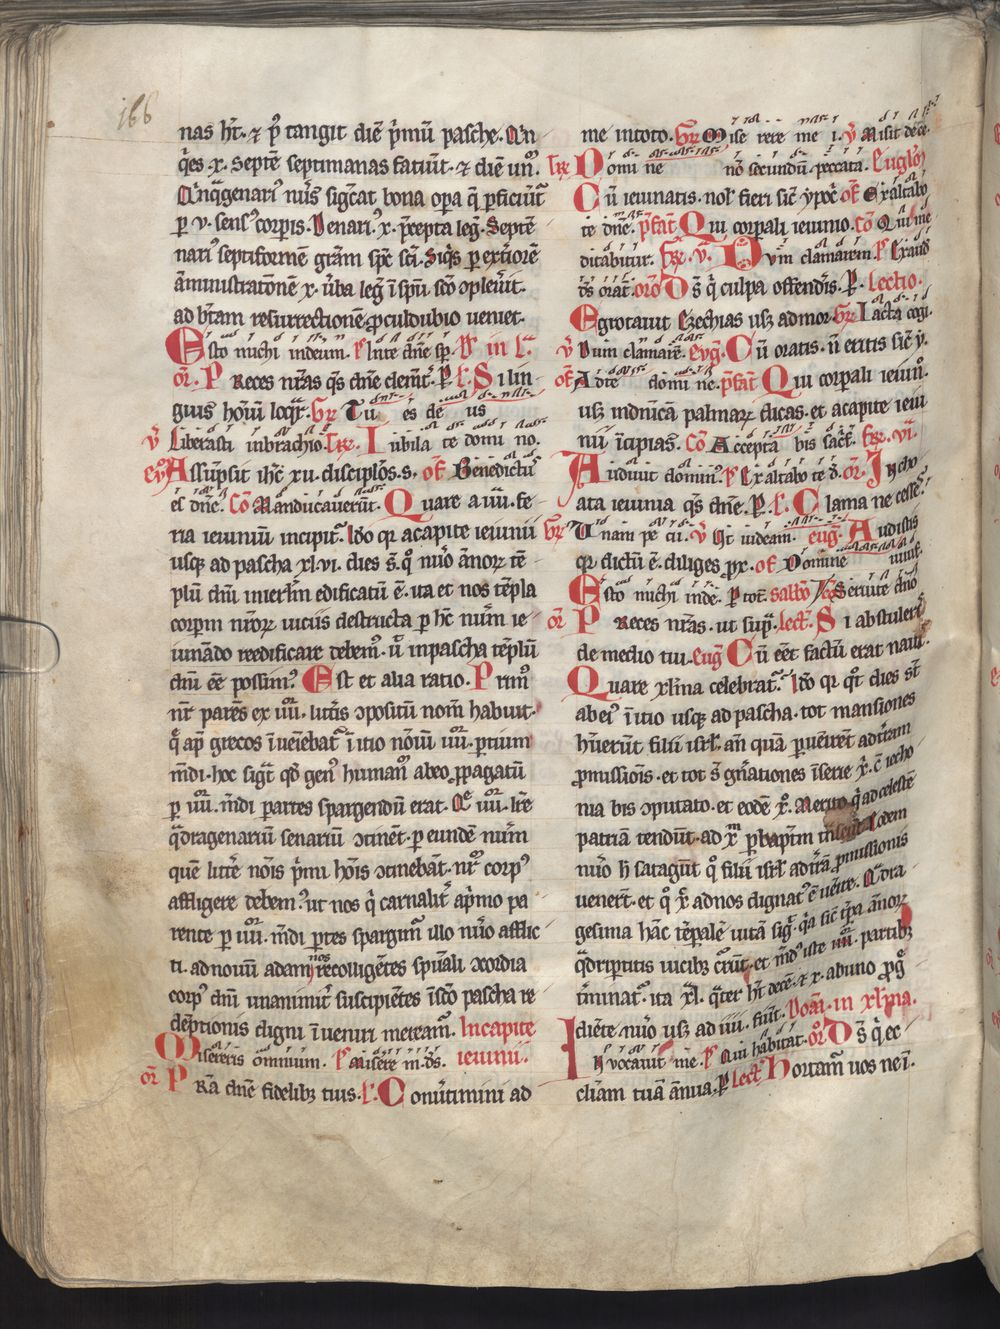 166
nas ht̄. ⁊ pꝰ tangit diē p̄mū pasche. Qn̄
q̄es .x. septē septimanas faciūt. ⁊ diē unū.
Qn̄q̄genariꝰ nūs sigc̄at bona oꝑa q̄ ꝑficiūt͛
ꝑ .v. sensꝰ corꝑis. Denariꝰ .x. p̄cepta leḡ. Septē
nariꝰ septiformē grām spc̄ sc̄i. Siq̄s ꝑ exͭiorē
āministratōnē .x. ūba leḡ ī spū sc̄o ɔpleūit.
ad bt̄am resurrectionē ꝓculdubio ueniet.
Esto michi in deum. p̄ In te dn̄e sp̄. in L͛
or̄. Preces nr̄as q̄s dn̄e clemt͛. P. L̄. Si lin-
guis hoīu loqr̄. Gr̄ Tu es de us
v̄ Liberasti in brachio. Iubila te domi no.
eu͛ Assūpsit ih̄c xii. disciplōs .s. of̄ Benedictus
es dn̄e. Cō Manducauerūt. Quare a .iiii. fe-
ria ieiuniū incipit͛. Ido qꝛ a capite ieiunii
usqꝫ ad pascha xl.vi. dies s̄. qͦ nūo ānoꝝ tē
plū dn̄i in ierl̄m edificatū ē. ita et nos tēpla
corꝑm nr̄oꝝ uiciis destructa ꝑ hc̄ num̄ ie-
iunādo reedificare debemꝰ. ut̄ in pascha tēplū
dn̄i eē possimꝰ. Est et alia ratio. Primꝰ
nr̄ parēs ex .iiii. litt̄is ɔpositū nom̄ habuit.
q̄ apͩ grecos īueiebāt͛ ī itio nōīu .iiii. partium
mūdi. hoc sigt͛ qd̄ genꝰ humanū ab eo ꝓpagatū
ꝑ .iiii. mūdi partes spargendū erat. Ade .iiii. lr̄e
q̄dragenariū senariū ɔtinēt. ꝑ eundē num̄
quē litt̄e noīs p̄mi hoīs ɔtinebāt. nr̄m corpꝰ
affligere debemꝰ. ut nos q̄ carnalit͛ a p̄mo pa
rente ꝑ .iiii. mūdi ꝑtes spargimr̄ illo nūo afflic
ti. ad nouū adam nos recolligētes spūali ɔcordia
corpꝰ dn̄i unanimit͛ suscipiētes ī sc̄o pascha re
dēptionis digni īueniri meream͛. In capite
Misereris omnium. p̄ Miserere m. ds̄. ieiunii.
or̄ Pra dn̄e fidelibꝫ tuis. L̄. Conūtimini ad
me in toto. Gr̄ Mise rere me i. v̄ Misit de ce.
Domi ne nō secundū. peccata. Eugl̄m
Cū ieiunatis. nol̄ fieri sic̄ ypoc͛ of̄ Exaltabo
te dn̄e. p̄fat͛ Qui corꝑali ieiunio. Cō Qui me
ditabitur. fr̄. v. Dum clamarem. p̄ Exaudi
ds̄ orat͛. orō Ds̄ q̄ culpa offendis̄. P. Lectio.
Egrotauit Ezechias usqꝫ ad mor. Gr̄ Iacta cogi.
v̄ Dum clamarē. eug̅. Cū oratis. ñ eritis sic̄ y.
of̄ Ad te domi ne. p̄fat͛ Qui corꝑali ieiuñ.
usqꝫ in dnīcā palmaꝝ dicas. et a capite ieiu
nii īcipias. Cō Accepta bis sacf̄. fr̄. vi.
Audiuit dominꝰ. p̄ Exaltabo te d̄. or̄. Incho
ata ieiunia q̄s dn̄e. P. L̄. Clama ne cesses.
Gr̄ Unam pe cii. v̄ Ut uideam. eug̅. Audistis
qꝛ dictū ē. diliges ꝓx. of̄ Domine uiuif̄.
Esto michi in de. P tot̄. Sabb̄o Seruite dn̄o
or̄ Preces nr̄as. ut sup͛. lect̄. Si abstuleris̄
de medio tui. eug̅ Cū eēt factū erat naui.
Quare xl̄ina celebrat͛. Ido qꝛ qt̄ dies st̄
ab eiꝰ īitio usqꝫ ad pascha. tot mansiones
hūerūt filii isrl̄. an̄ quā ꝑuenirēt ad tr̄ram
ꝓmissiōis. et tot s̄ gn̄ationes ī serie x̄. c̄ iecho
nia bis ɔputato. et eodē xͦ. Merito q̄ ad celestē
patriā tendūt. ad x̄m ꝑ baptm̄ eodem
nūo h̄ satagūt qͦ filii isrl̄ ad tr̄rā ꝓmissionis
uenerūt. et qͦ x̄ ad nos dignatꝰ ē uēire. Qͣdra
gesima hāc tēꝑalē uitā sigt͛. q̄a sic̄ ip̄a ānoꝝ
q̄driꝑtitis uicibꝫ et mūdꝰ iste .iiii. partibꝫ
t͛minat͛. ita xl̄. q̄ter ht̄ decē. ⁊ x. ab uno ꝓg͛
diēte nūo usqꝫ ad iiii. fiūt. Domī. in xl̄ina.
Inuocauit me. p̄ Qui habitat. or̄ Ds̄ q̄ ec
cliam tuā ānua. P. Lect̄ Hortam͛ uos ne ī.